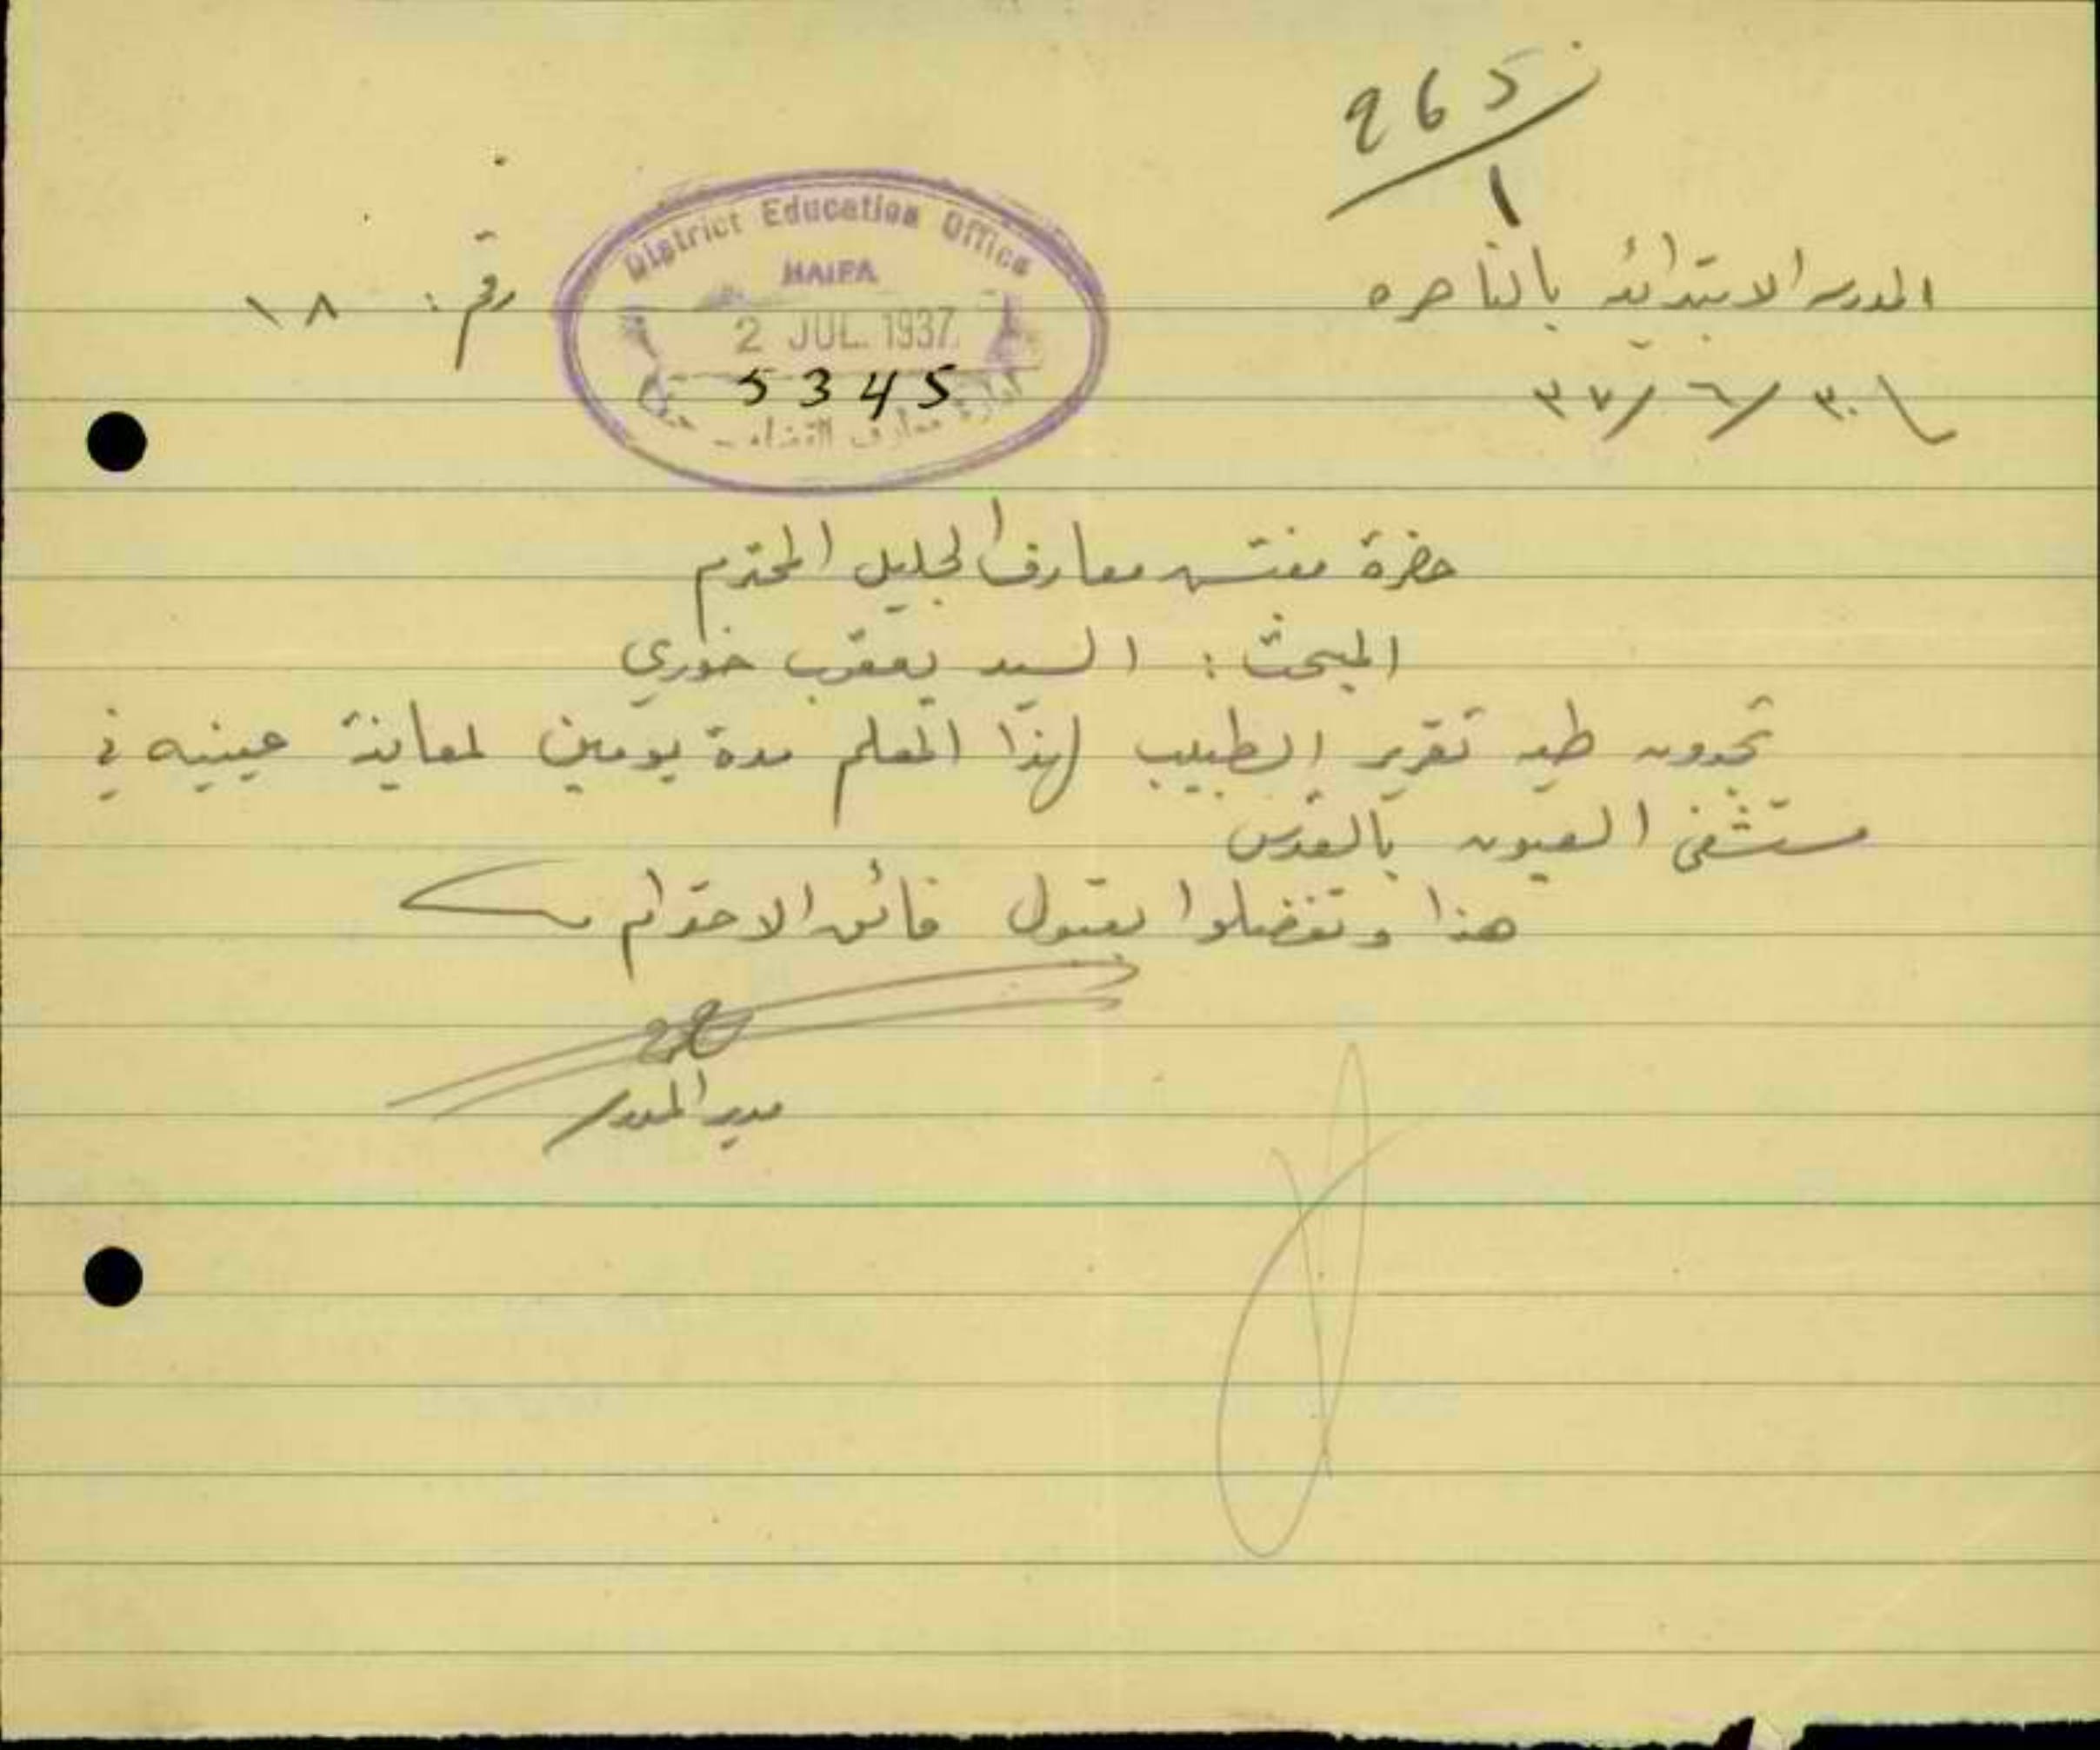 265
١
المدرسه الابتدائيه بالناصره
رقم: ١٨
٣٧/٦/٣٠
District Education Office
HAIFA
2 JUL. 1937
5345
ادارة معارف القضاء - حيفا
حضرة مفتش معارف الجليل المحترم
المبحث: السيد يعقوب خوري
تجدون طيه تقرير الطبيب لهذا المعلم مدة يومين لمعاينة عينيه في
مستشفى العيون بالقدس
هذا وتفضلوا بقبول فائق الاحترام
مدير المدرسه